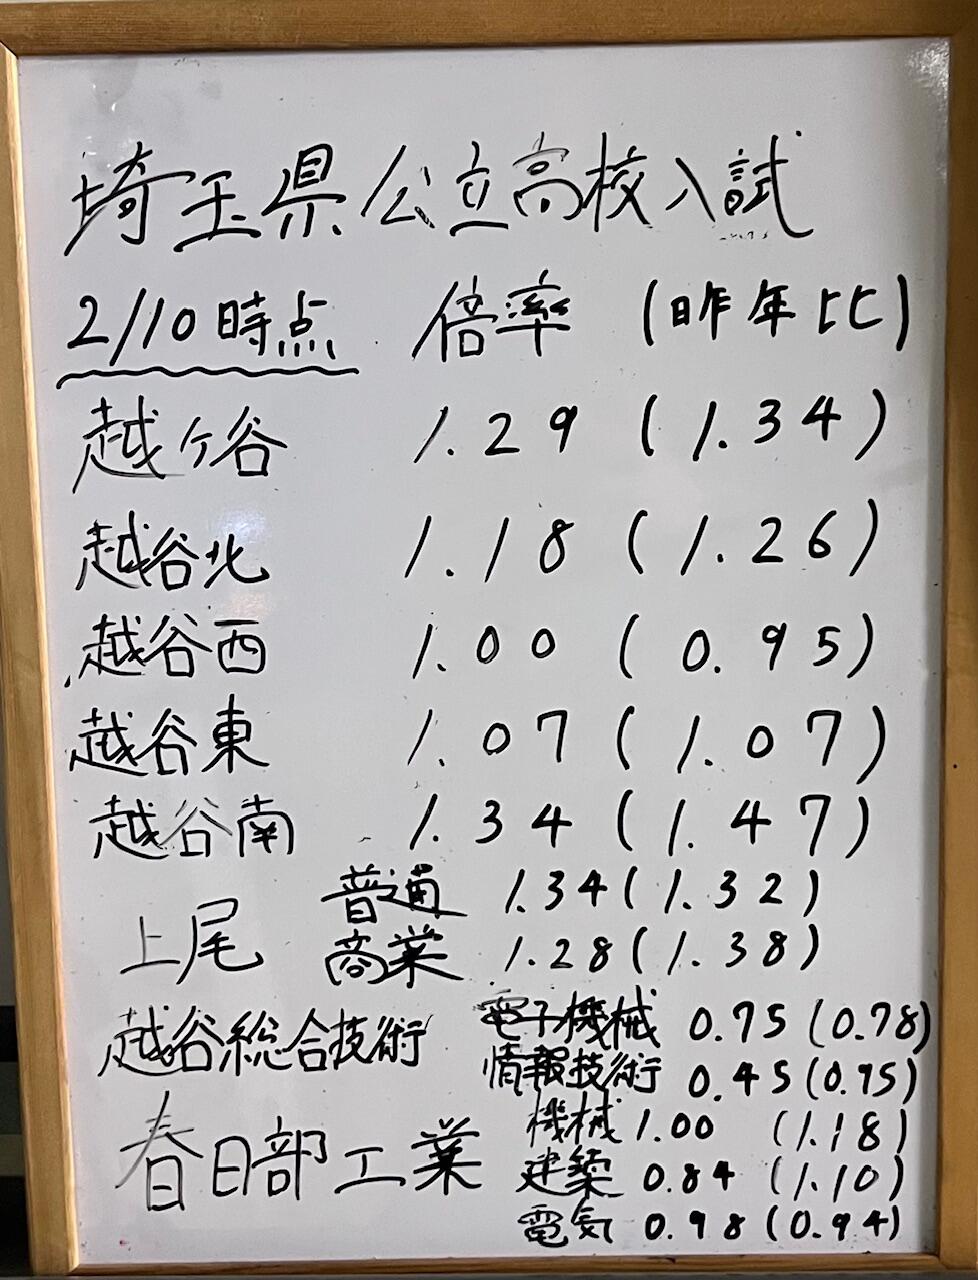 埼玉県公立高校入試
2/10時点 倍率 (昨年比)
越ヶ谷 1.29 (1.34)
越谷北 1.18 (1.26)
越谷西 1.00 (0.95)
越谷東 1.07 (1.07)
越谷南 1.34 (1.47)
上尾 普通 1.34 (1.32)
商業 1.28 (1.38)
越谷総合技術 電子機械 0.75 (0.78)
情報技術 0.45 (0.95)
春日部工業 機械 1.00 (1.18)
建築 0.84 (1.10)
電気 0.98 (0.94)